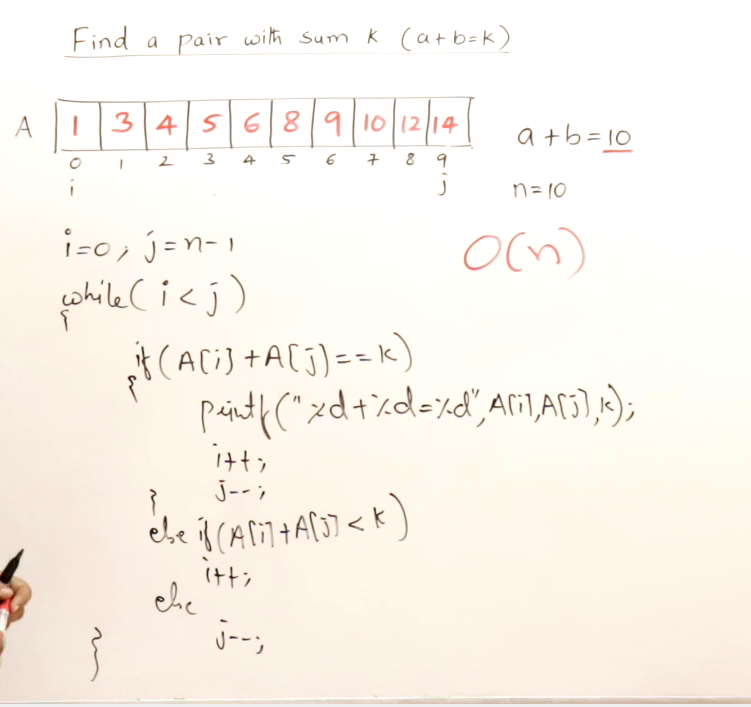 Find a pair with sum K (a+b=K)
A 1 3 4 5 6 8 9 10 12 14
0 1 2 3 4 5 6 7 8 9
i j
a+b=10
n=10
i=0, j=n-1
O(n)
while(i<j)
{
if(A[i]+A[j]==k)
{
printf("%d+%d=%d",A[i],A[j],k);
i++;
j--;
}
else if(A[i]+A[j]<k)
i++;
else
j--;
}